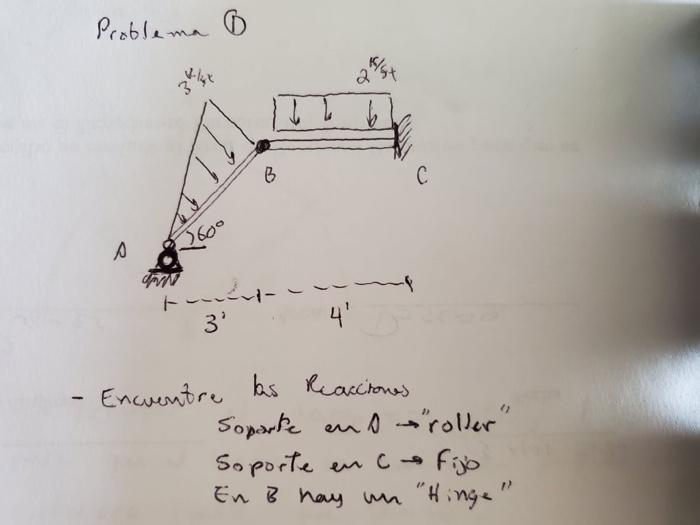 Problema ①
3 k/ft
2 k/ft
B
C
A
60°
3'
4'
- Encuentre las Reacciones
Soporte en A → "roller"
Soporte en C → Fijo
En B hay un "Hinge"